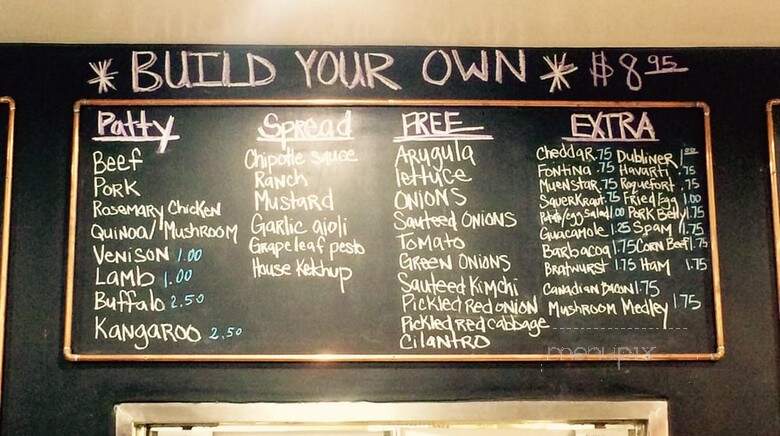 * BUILD YOUR OWN * $8.95
Patty
Beef
Pork
Rosemary Chicken
Quinoa/Mushroom
Venison 1.00
Lamb 1.00
Buffalo 2.50
Kangaroo 2.50
Spread
Chipotle sauce
Ranch
Mustard
Garlic aioli
Grape leaf pesto
House Ketchup
FREE
Arugula
lettuce
Onions
Sauteed Onions
Tomato
Green Onions
Sauteed Kimchi
Pickled Red Onion
Pickled red cabbage
Cilantro
EXTRA
Cheddar .75 Dubliner 1.00
Fontina .75 Havarti .75
Muenstar .75 Roquefort .75
Sauerkraut .75 Fried Egg 1.00
Potato/egg Salad 1.00 Pork Belly 1.75
Guacamole 1.25 Spam 1.75
Barbacoa 1.75 Corn Beef 1.75
Bratwurst 1.75 Ham 1.75
Canadian Bacon 1.75
Mushroom Medley 1.75
menupix